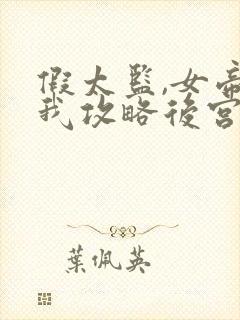 假太監,女帝
我攻略後宮
葉佩英